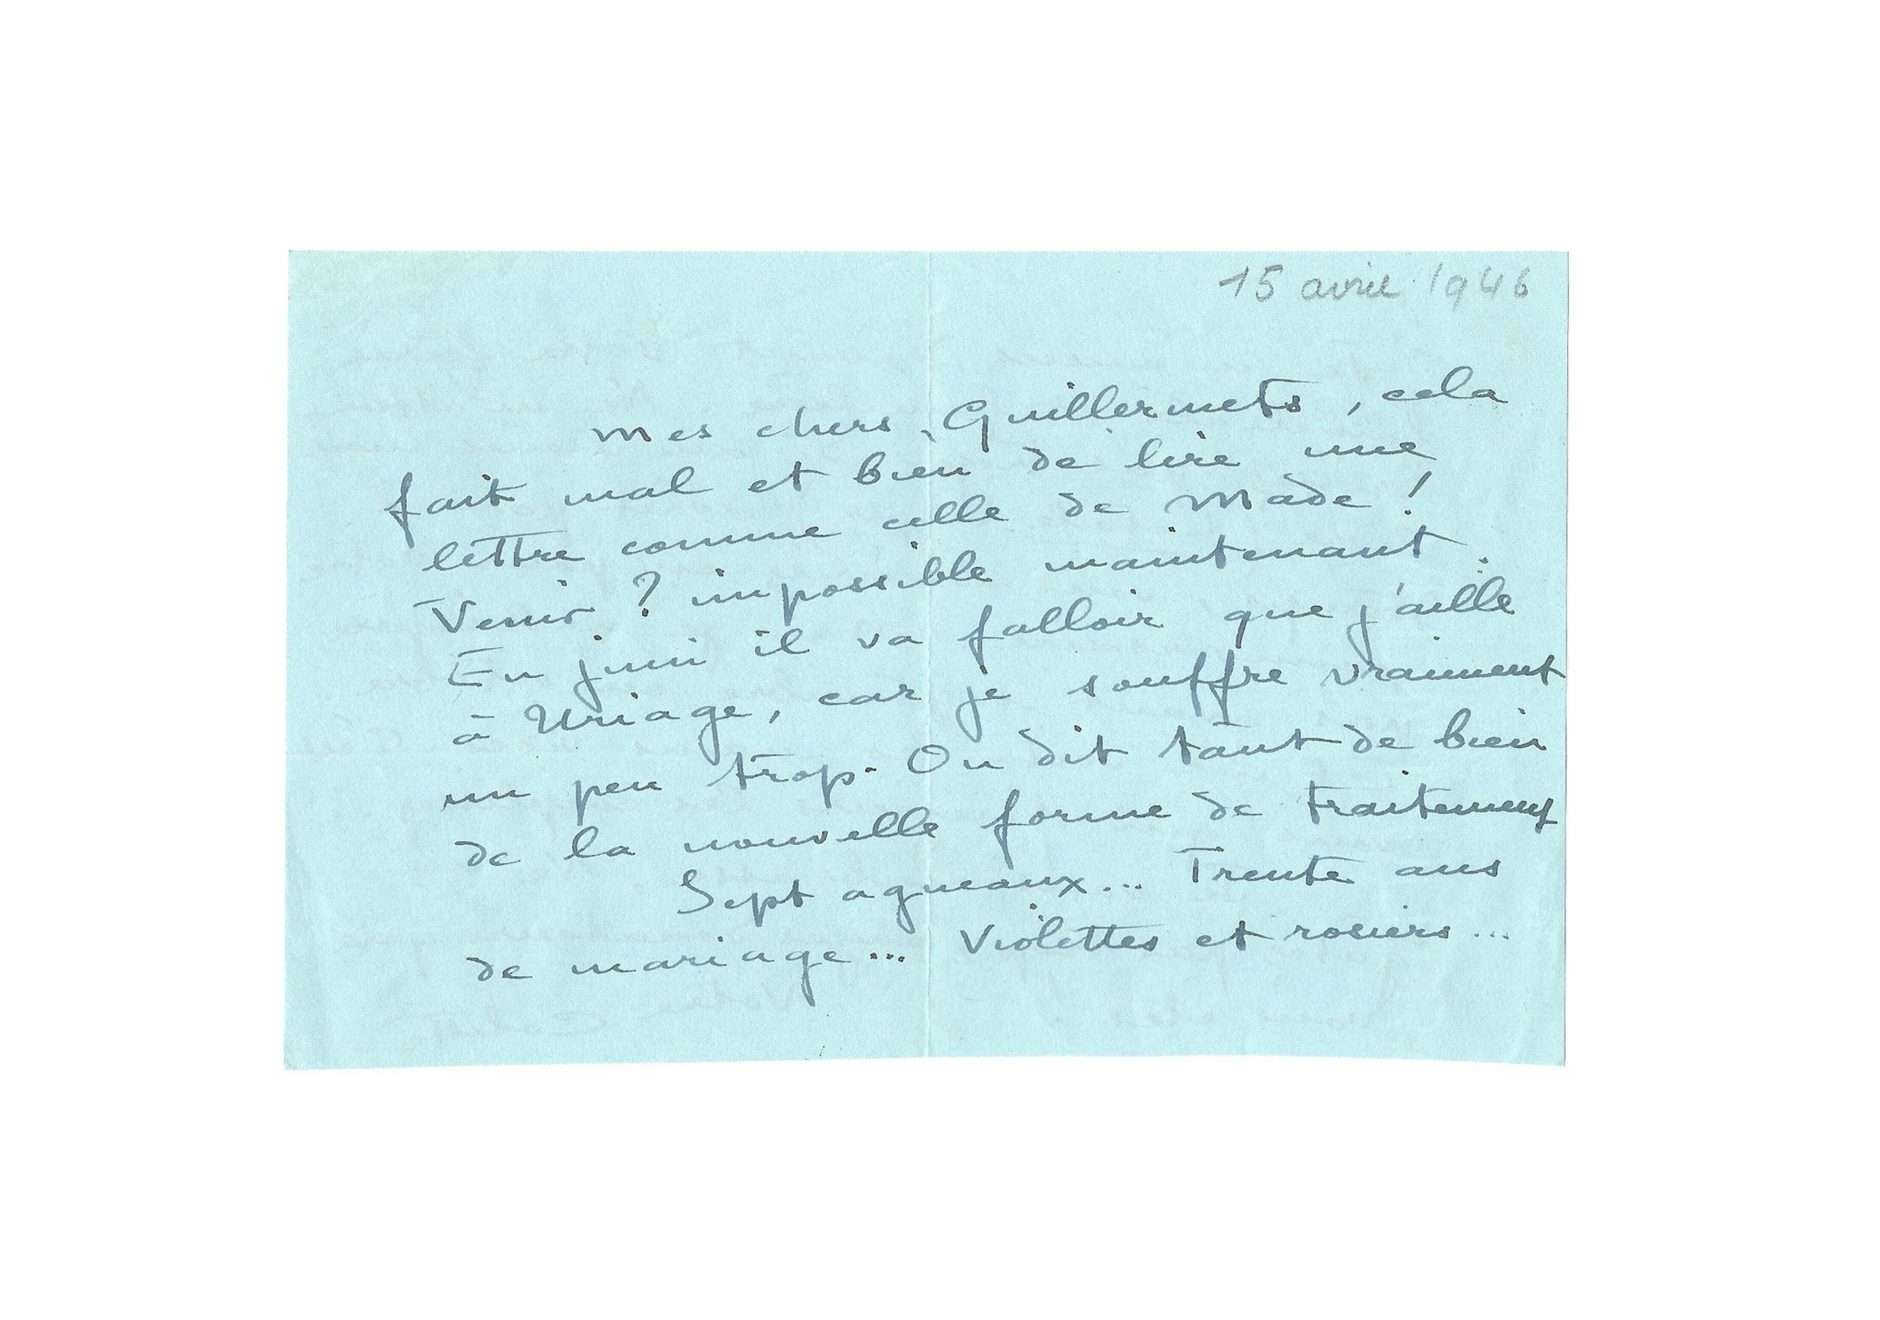 15 avril 1946
Mes chers Guillermets, cela
fait mal et bien de lire une
lettre comme celle de Made !
Venir ? impossible maintenant.
En juin il va falloir que j'aille
à Uriage, car je souffre vraiment
un peu trop. On dit tant de bien
de la nouvelle forme de traitement
Sept agneaux... Trente ans
de mariage... Violettes et rosiers...